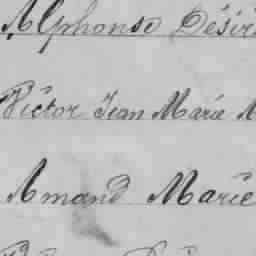 Alphonse Désir
Victor Jean Marie
Amand Marie